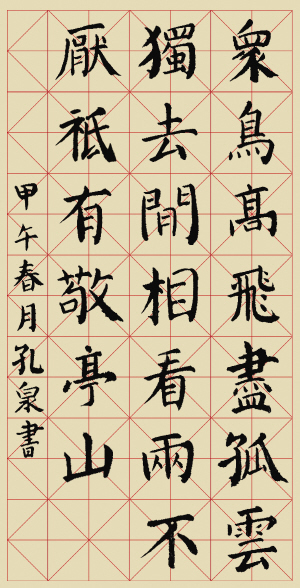 衆鳥髙飛盡孤雲
獨去閒相看兩不
厭祗有敬亭山
甲午春月孔泉書